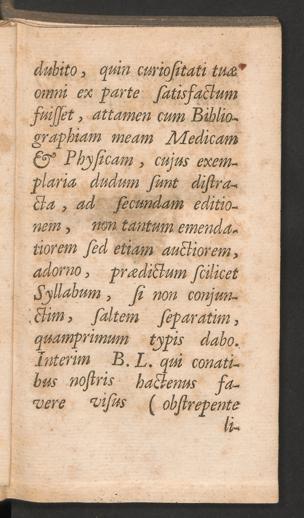 dubito, quin curioſitati tuæ
omni ex parte ſatisfactum
fuiſſet, attamen cum Biblio-
graphiam meam Medicam
& Phyſicam, cujus exem-
plaria dudum ſunt diſtra-
cta, ad ſecundam editio-
nem, non tantum emenda-
tiorem ſed etiam auctiorem,
adorno, prædictum ſcilicet
Syllabum, ſi non conjun-
ctim, ſaltem ſeparatim,
quamprimum typis dabo.
Interim B. L. qui conati-
bus noſtris hactenus fa-
vere viſus (obſtrepente
li-